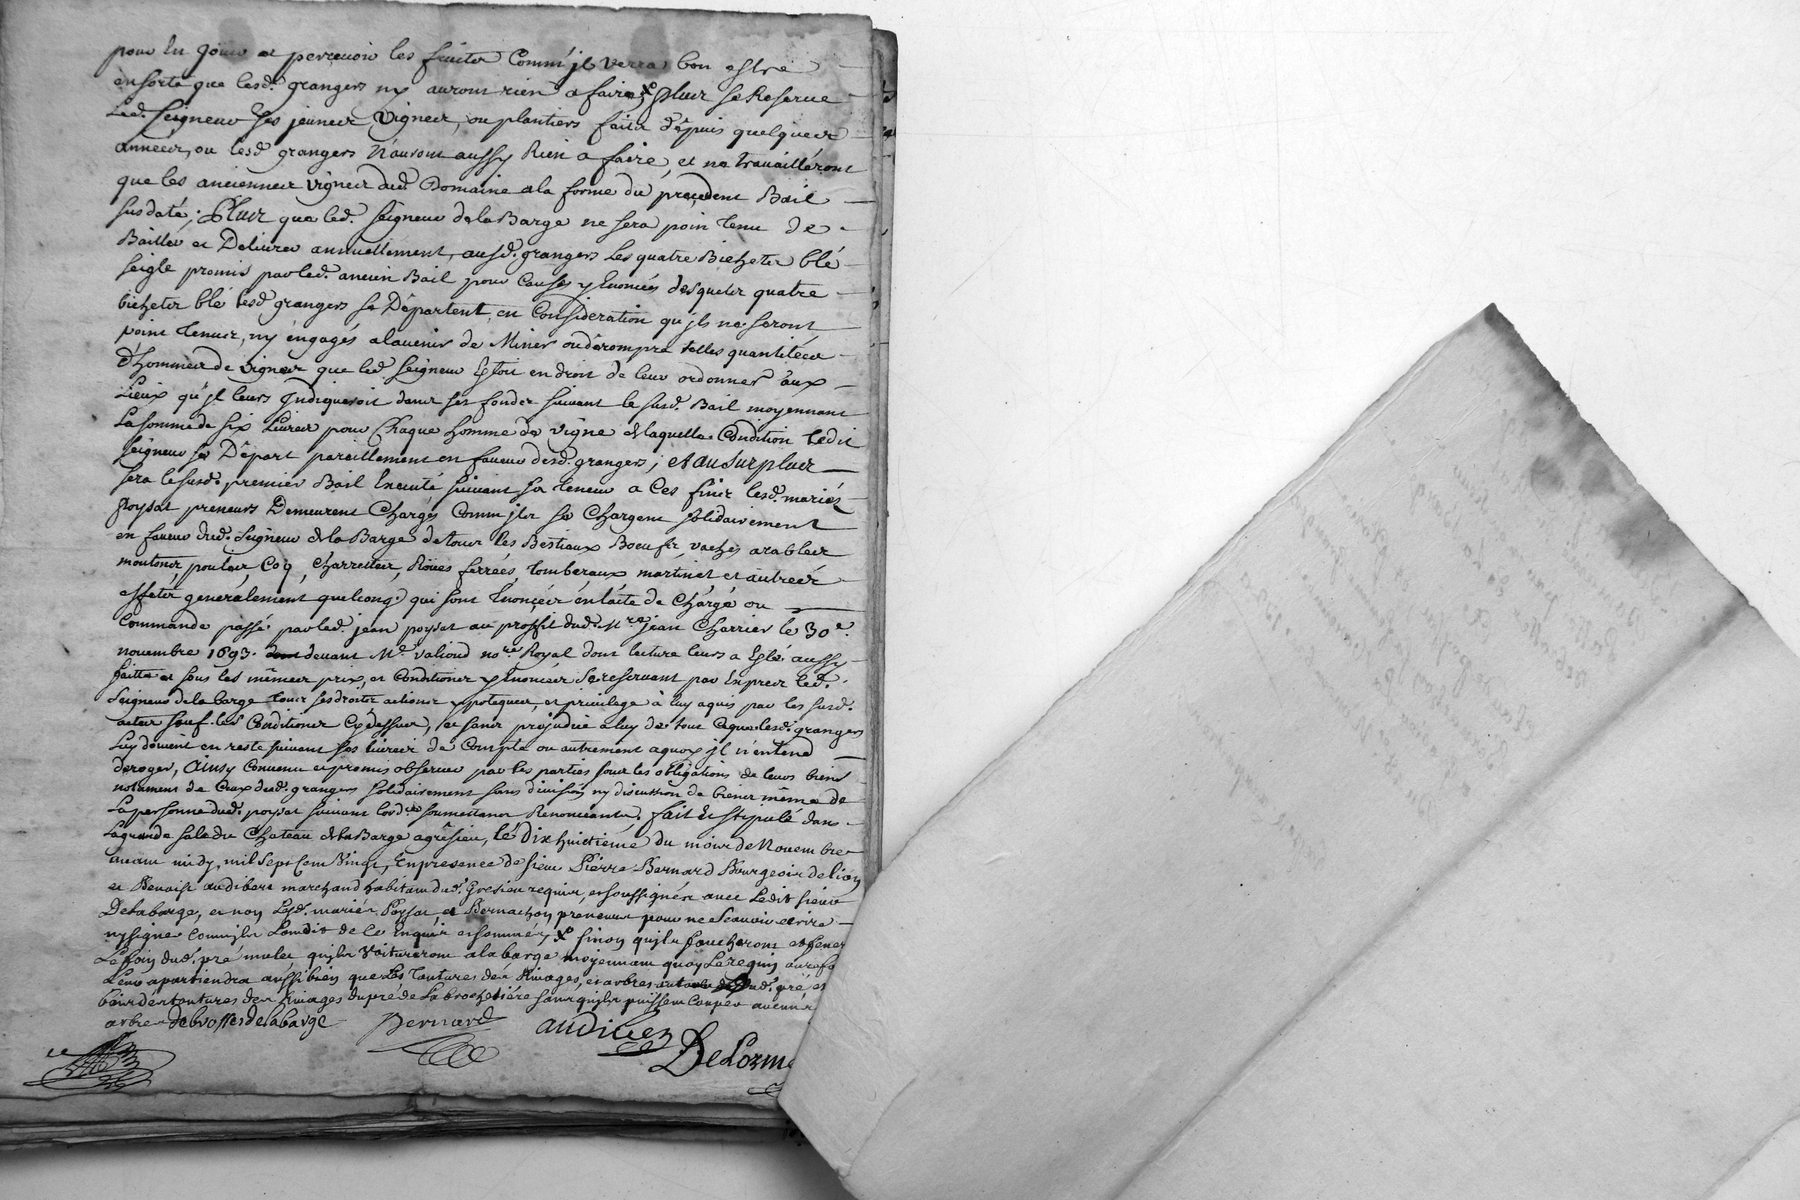 pour en Jouir et percevoir les fruits Comm'jl verra bon estre
en sorte que lesd. grangers ny auront rien a faire, plus se Reserve
Led. Seigneur ses jeunes Vignes, ou plantiers faits dépuis quelques
années, ou lesd. grangers n'auront aussy Rien a faire, et ne travaillèront
que les anciennes vignes dud. Domaine a la forme du précedent Bail
susdaté; Plus que led. Seigneur de la Barge ne sera poin tenu de
Bailler et Délivrer annuellement, ausd. grangers les quatre Bichetes blé
seigle promis par led. ancien Bail pour Causes y Enoncées desquels quatre
bichetes blé lesd. grangers se Départent, en Considération qu'jls ne seront
point tenus, ny éngagés a l'avenir de Miner ou dérompre telles quantitées
d'hommées de vignes que led. Seigneur Estoit en droit de leur ordonner aux
Lieux qu'jl leurs Indiqueroit dans ses fonds suivant le susd. Bail moyennant
La somme de six Livres pour Chaque homme de vigne de laquelle Condition ledit
Seigneur se Départ pareillement en faveur desd. grangers; et au surplus
sera le susd. premier Bail Executé suivant sa teneur a Ces fins lesd. mariés
poysat preneurs Demeurent Chargés Comm'jls se Chargent solidairement
en faveur dud. Seigneur de la Barge de tous les Bestiaux Boeufs, vaches arables
moutons, poules Coq, Charrettes, Roües ferrées, tomberaux martinet et autrées
effets généralement quelconq. qui sont Enoncées en l'acte de Chargé ou
Commande passé par led. jean poysat au proffit dud. Mre. jean Charrier le 30e.
novembre 1693. devant Me. Valioud nore. Royal dont lecture leurs a Esté aussy
faitte et sous les mêmes prix, et Conditions y Enoncées se reservant par Exprez led.
Seigneur de la barge tous ses droits actions ypoteques, et privilege à luy aquis par les susd.
actes sauf les Conditions Cy dessus, et sans prejudice a luy de tout Ce que lesd. grangers
Luy doivent en reste suivant ses livres de Compte ou autrement a quoy jl n'entend
deroger, Ainsy Convenu et promis observer par les parties sous les obligations de leurs biens
notament de Ceux dud. grangers solidairement sans division ny discussion de biens même de
La personne dud. poysat suivant les soumettans Renonceants. fait Et stipulé dans
La grande sale du Chateau de la Barge a grésieu, le Dix huictieme du mois de Novembre
avant midy, mil sept Cent Vingt, En presence de sieur Pierre Bernard Bourgeois de lion
et Benoist audibert marchand habitans dud. Gresieu requis, et soussignés avec Ledit sieur
De la barge, et non Lesd. mariés Poysat, et Bernachon preneurs pour ne Scavoir ecrire
ny signer Comm'jls L'ont dit de Ce Enquis et sommés, sinon qu'jls faucheront et fener
Le foin dud. pré qu'jls voitureront a la barge moyennant quoy Le
Leur apartiendra aussi bien que Les tontures des Rivages, et arbres dud. pré et
des tontures des Rivages du pré de La brochetiére sans qu'jls puissent Couper aucuns
arbres DebrossesdelaBarge Bernard audibert
DeLorm